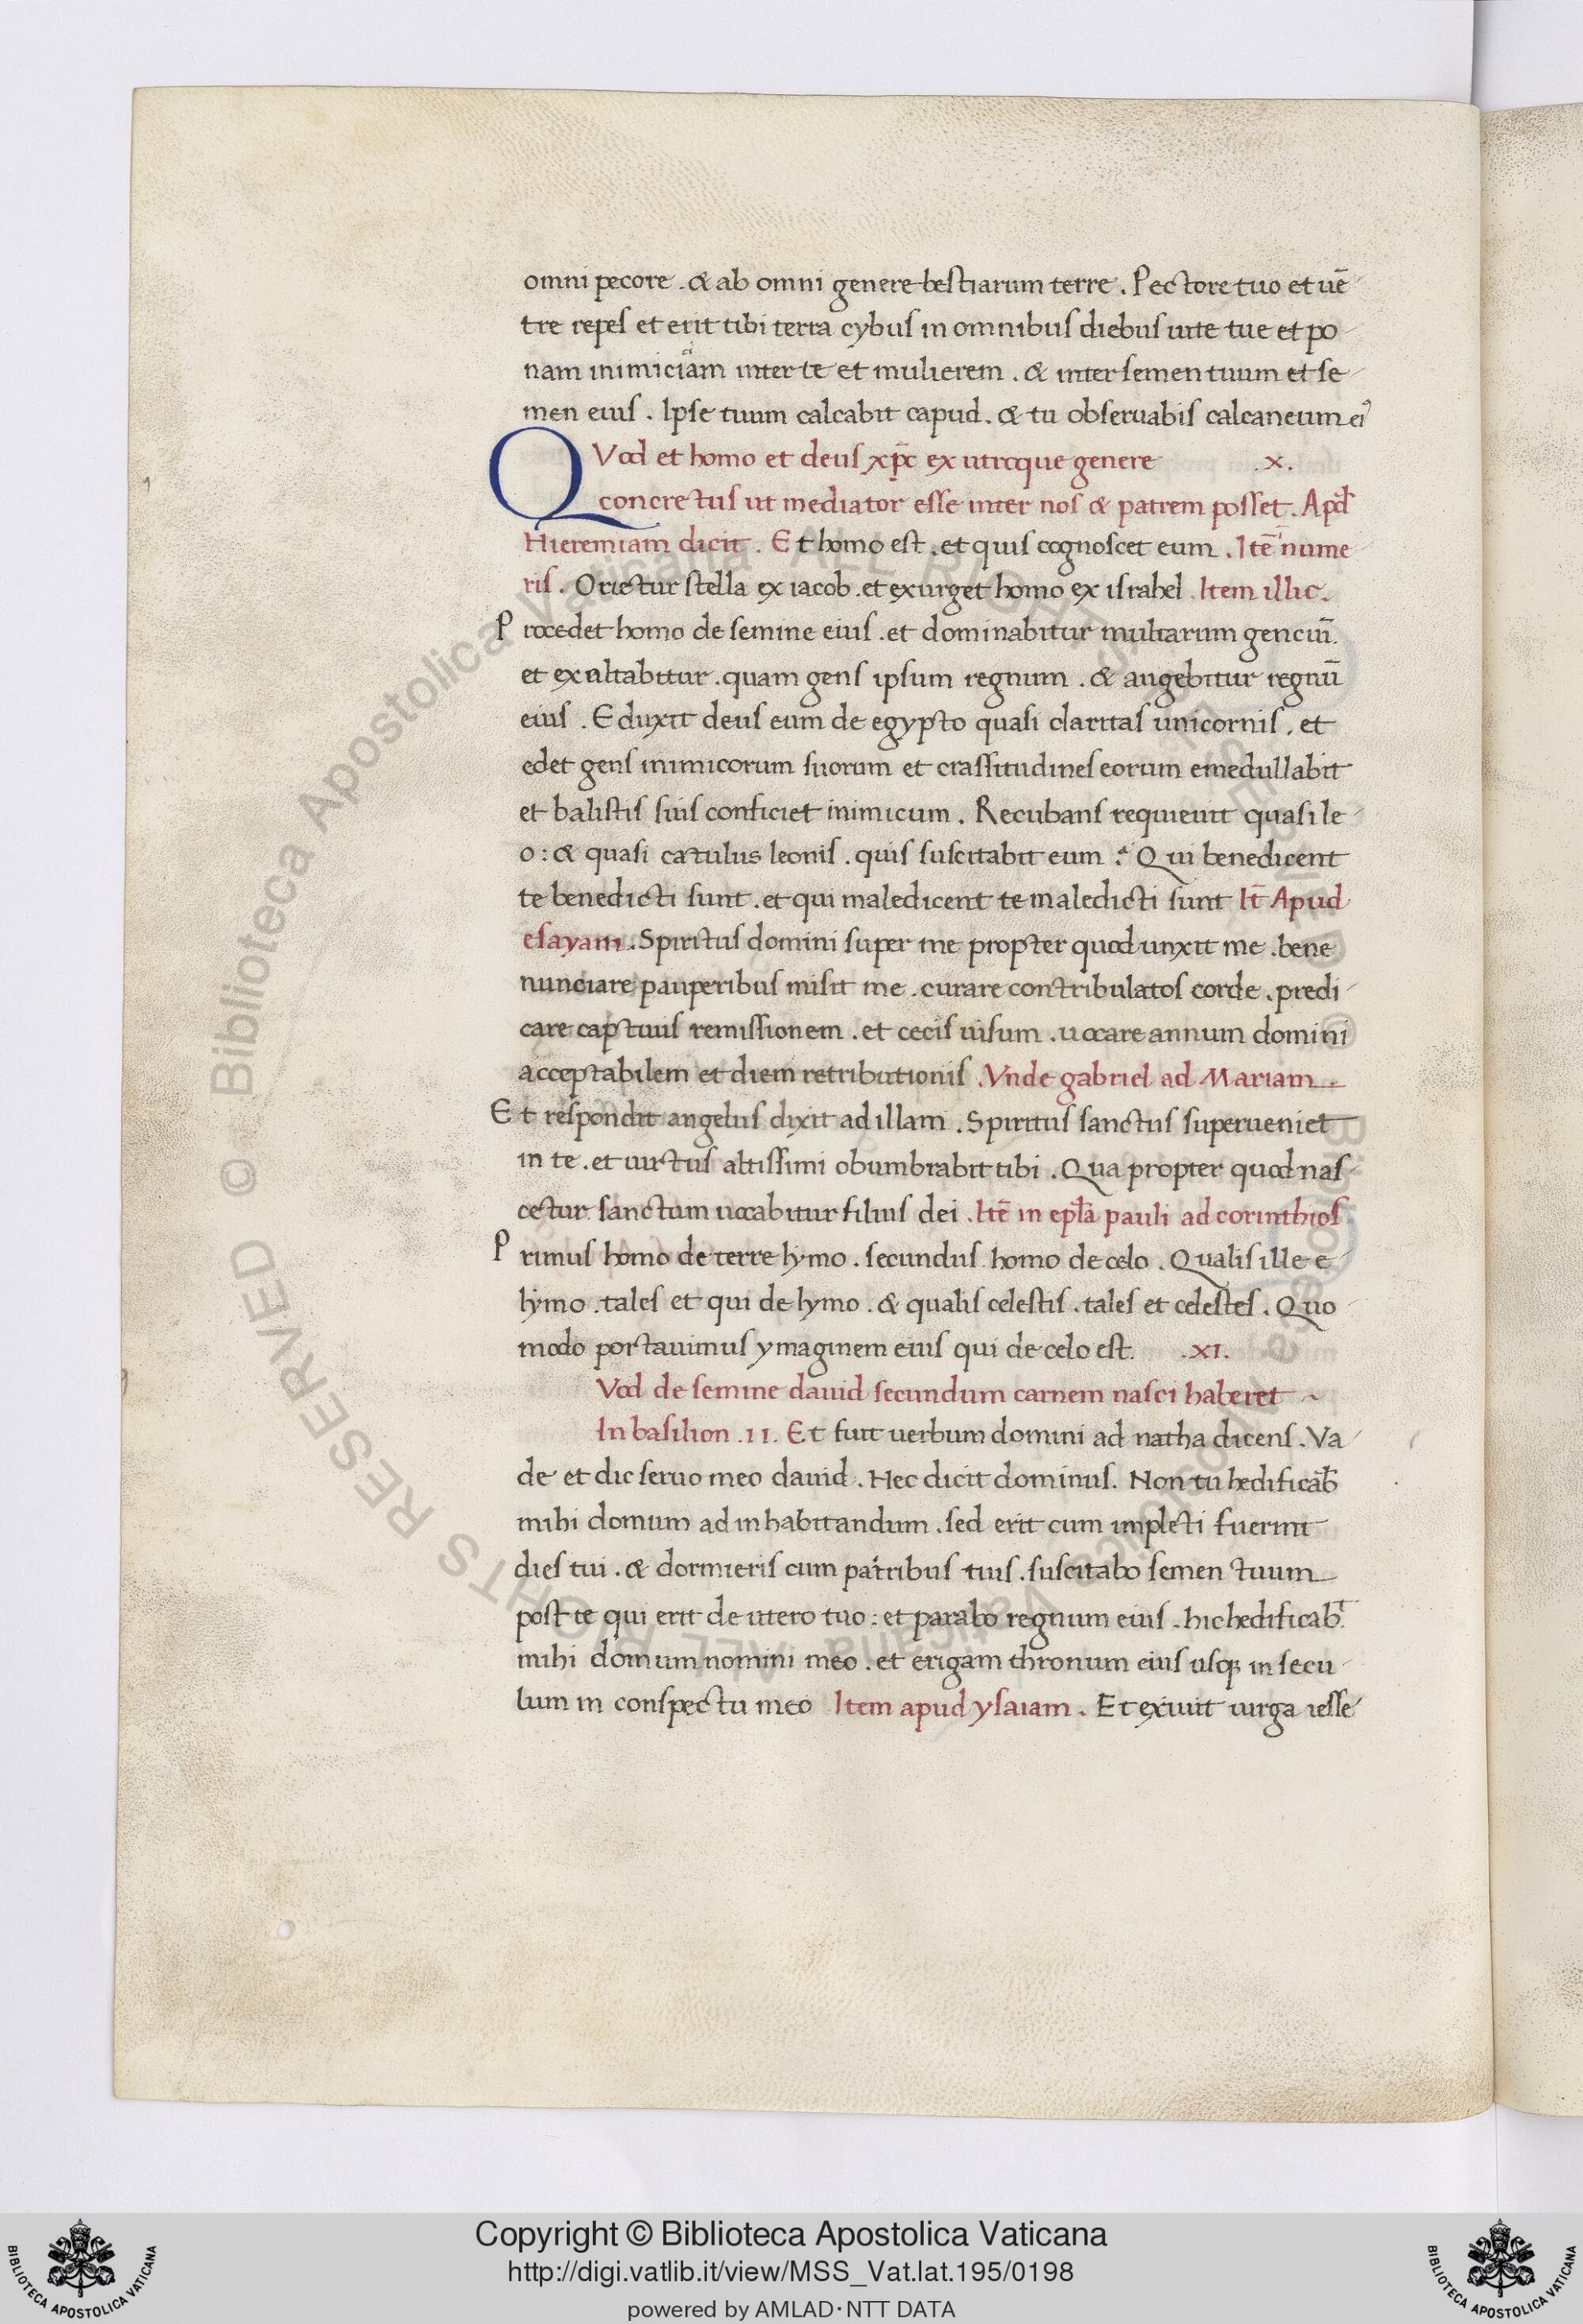 omni pecore . & ab omni genere bestiarum terre . Pectore tuo et uē
tre repes et erit tibi terra cybus in omnibus diebus uite tue et po
nam inimiciam inter te et mulierem . & inter semen tuum et se
men eius . Ipse tuum calcabit capud . & tu obseruabis calcaneum ei᾽
QVod et homo et deus xp̄c ex utroque genere .x.
concretus ut mediator esse inter nos & patrem posset . Apd̄
Hieremiam dicit . Et homo est . et quis cognoscet eum . Itē nume
ris . Orietur stella ex iacob . et exurget homo ex israhel . Item illic .
Procedet homo de semine eius . et dominabitur multarum genciū .
et exultabitur . quam gens ipsum regnum . & augebitur regnū
eius . Eduxit deus eum de egypto quasi claritas unicornis . et
edet gens inimicorum suorum et crassitudines eorum emedullabit
et balistis suis conficiet inimicum . Recubans requieuit quasi le
o : & quasi catulus leonis . quis suscitabit eum ? Qui benedicent
te benedicti sunt . et qui maledicent te maledicti sunt It̄ Apud
esayam . Spiritus domini super me propter quod unxit me . bene
nunciare pauperibus misit me . curare contribulatos corde . predi
care captiuis remissionem . et cecis uisum . uocare annum domini
acceptabilem et diem retributionis . Vnde gabriel ad Mariam
Et respondit angelus dixit ad illam . Spiritus sanctus superueniet
in te . et uirtus altissimi obumbrabit tibi . Qua propter quod nas
cetur sanctum uocabitur filius dei . Itē in epl̄a pauli ad corinthios
Primus homo de terre lymo . secundus homo de celo . Qualis ille e
lymo . tales et qui de lymo . & qualis celestis . tales et celestes . Quo
modo portauimus ymaginem eius qui de celo est . .xi.
Vod de semine dauid secundum carnem nasci haberet
In basilion .11. Et fuit uerbum domini ad natha dicens . Va
de et dic seruo meo dauid . Hec dicit dominus . Non tu hedificab̄
mihi domum ad inhabitandum . sed erit cum impleti fuerint
dies tui . & dormieris cum patribus tuis . suscitabo semen tuum
post te qui erit de utero tuo : et parabo regnum eius . hic hedificabᵗ
mihi domum nomini meo . et erigam thronum eius usqꝫ in secu
lum in conspectu meo Item apud ysaiam . Et exiuit uirga iesse
© Biblioteca Apostolica Vaticana ALL RIGHTS RESERVED
Copyright © Biblioteca Apostolica Vaticana
http://digi.vatlib.it/view/MSS_Vat.lat.195/0198
powered by AMLAD·NTT DATA
BIBLIOTECA APOSTOLICA VATICANA
BIBLIOTECA APOSTOLICA VATICANA